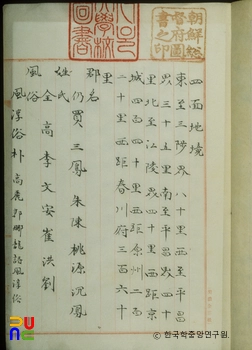 朝鮮総
督府圖
書之印
四面地境
東至三陟界八十里西至平昌
界三十里南至平昌界
里北至江陵界四十里西距京
城四百十里西距原州二百
二十里西距春川府三百六十
里
郡名
仍買 三鳳 朱陳 桃源 沉鳳
姓氏
全高李文安崔洪劉
風俗
風淳俗朴 高麗郭 詩風淳俗
한국학중앙연구원